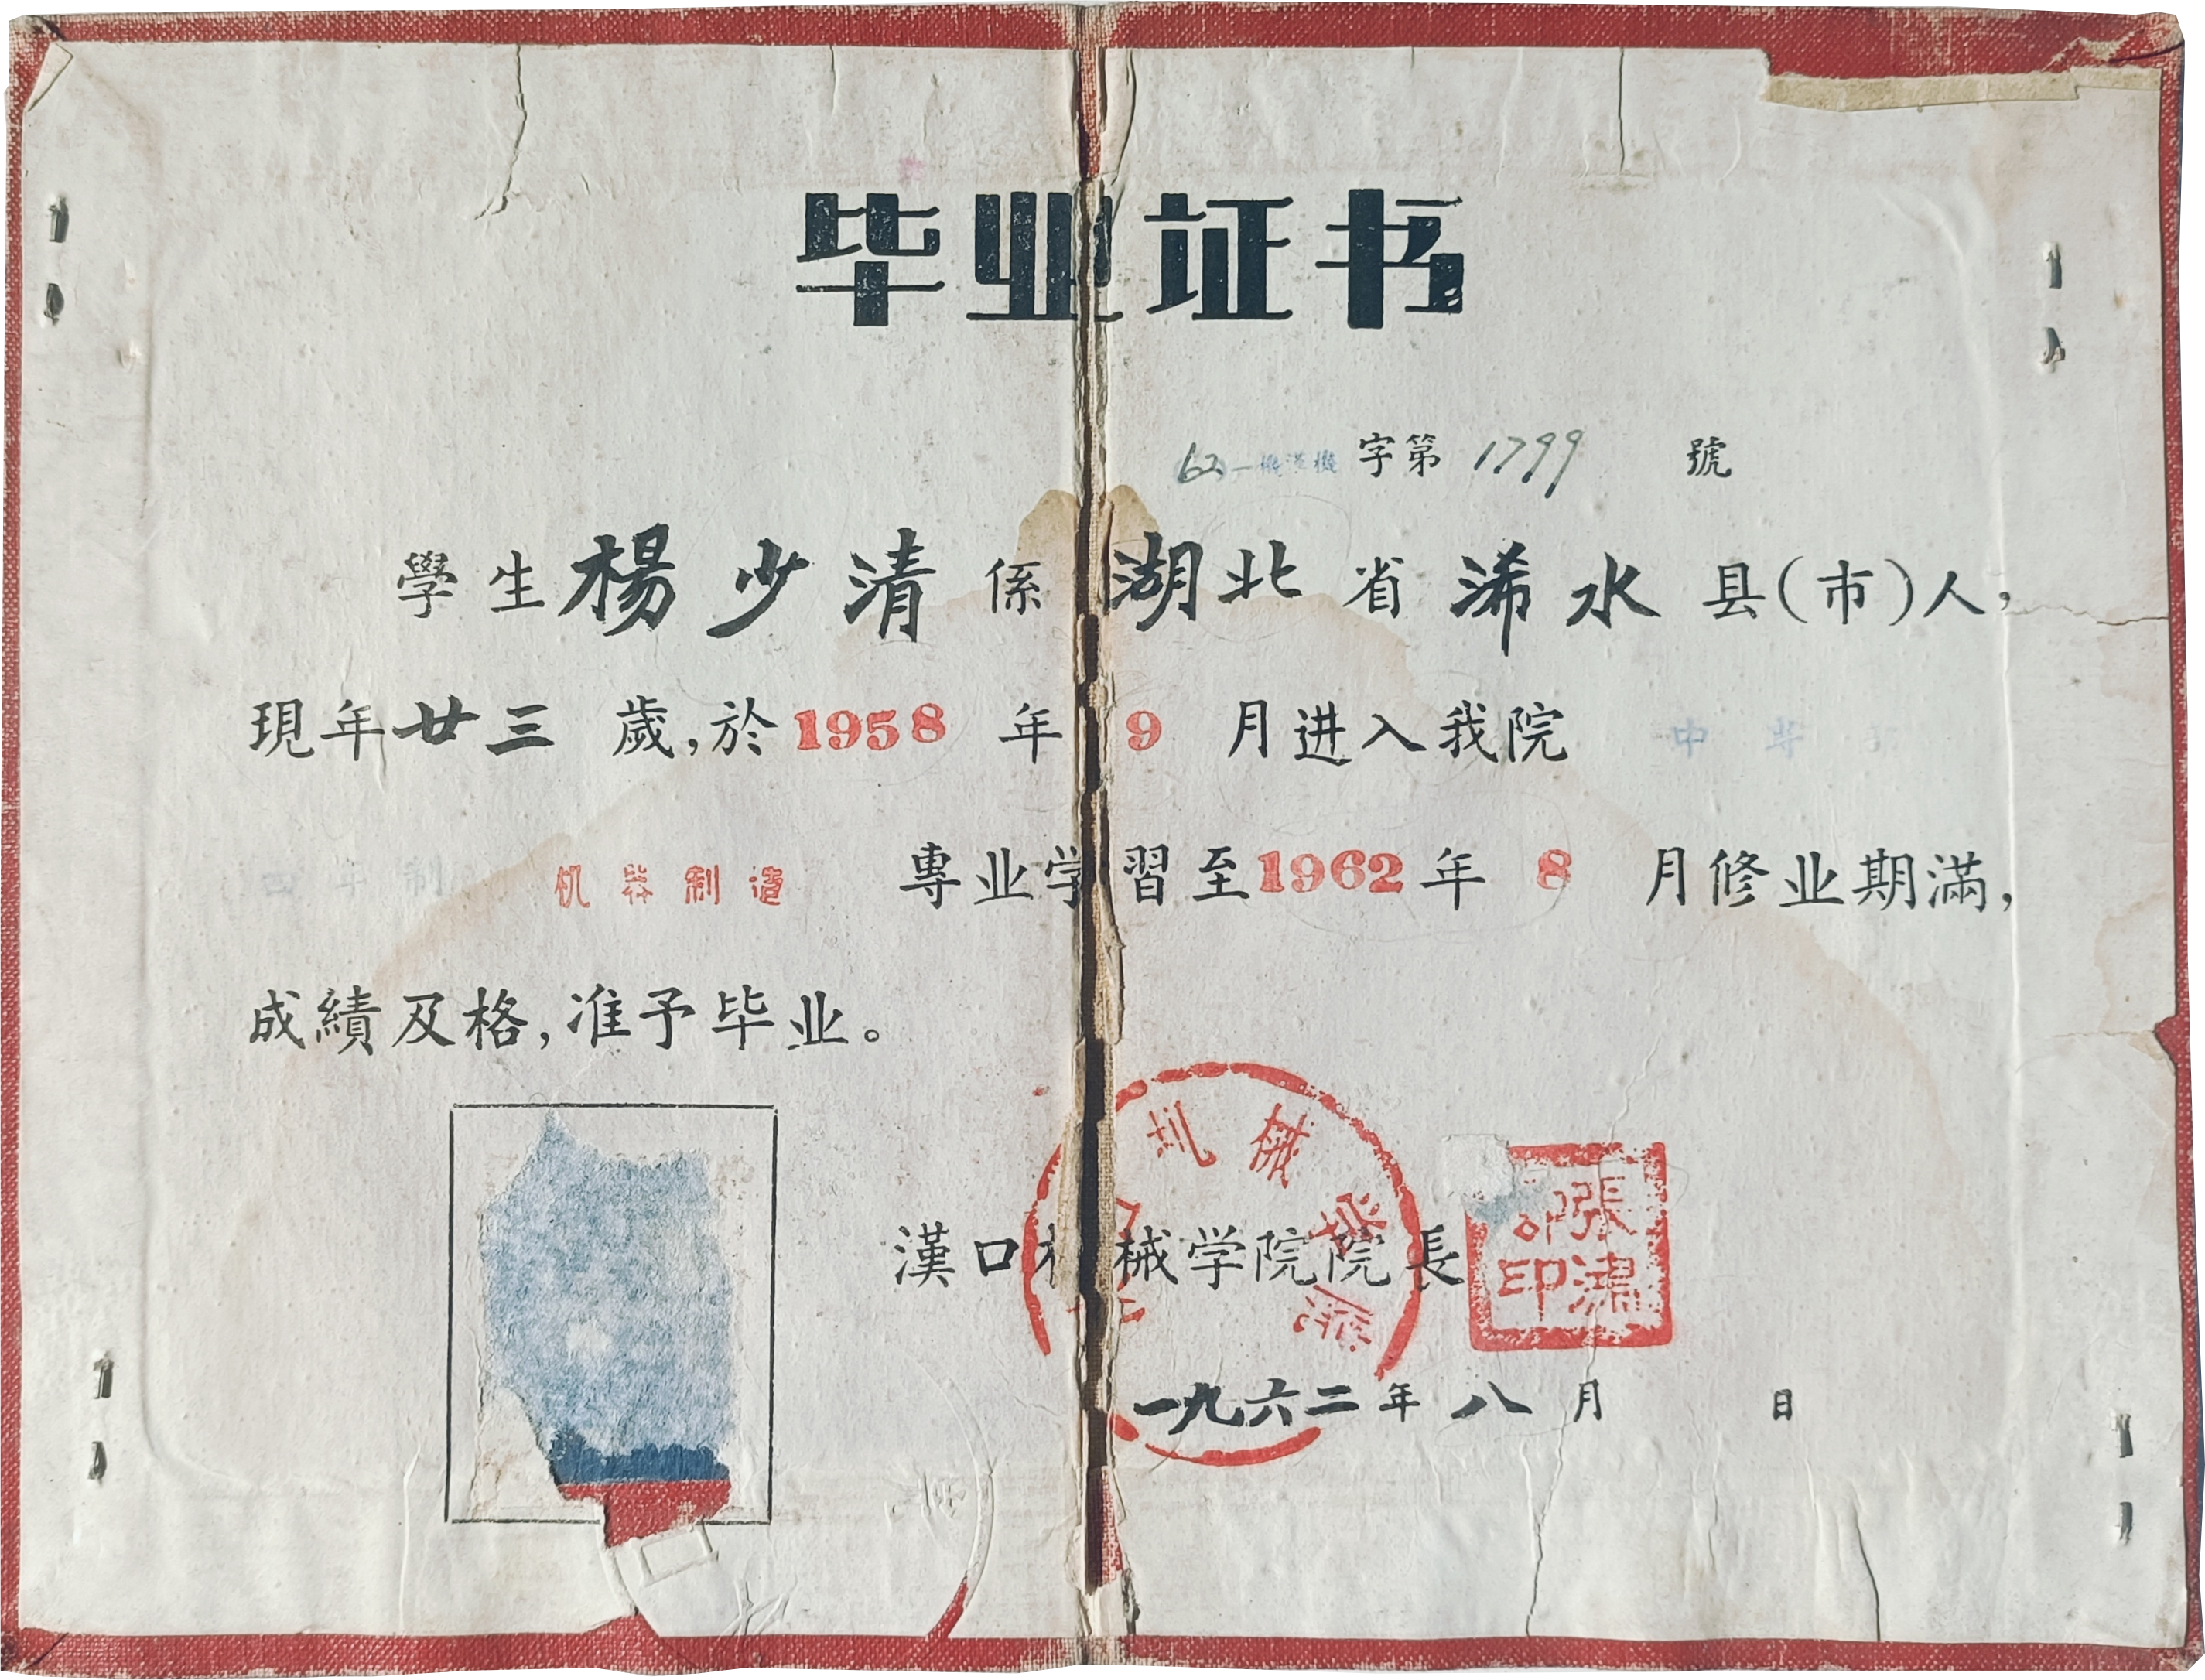 毕业证书
62 一機漢機 字第 1799 號
學生 楊少清 係 湖北 省 浠水 县(市)人,
現年 廿三 歲,於 1958 年 9 月进入我院 中等
四年制 机器制造 專业学習至 1962 年 8 月修业期滿,
成績及格,准予毕业。
漢口机械学院院長
張
印
一九六二年八月 日